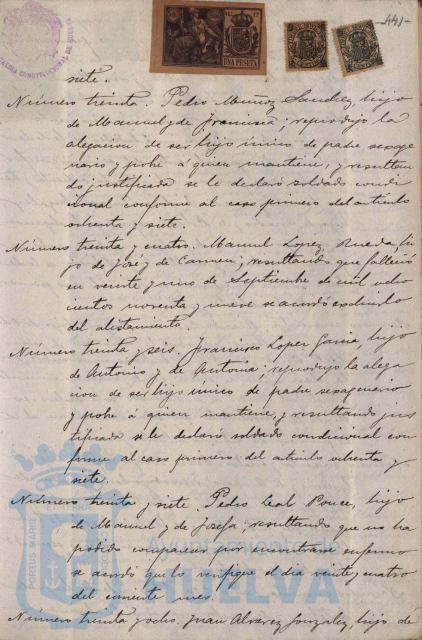 -441-
UNA PESETA
ALCALDIA CONSTITUCIONAL DE HUELVA
siete.
Número treinta. Pedro Muñoz Sanchez, hijo
de Manuel y de Francisca; reprodujo la
alegacion de ser hijo único de padre sexage
nario y pobre á quien mantiene, y resultan
do justificada se le declaró soldado condi
cional conforme al caso primero del artículo
ochenta y siete.
Número treinta y cuatro. Manuel Lopez Rueda, hi
jo de José y de Carmen; resultando que falleció
en veinte y uno de Septiembre de mil ocho
cientos noventa y nueve se acordó excluirlo
del alistamiento.
Número treinta y seis. Francisco Lopez Garcia, hijo
de Antonio y de Antonia; reprodujo la alega
cion de ser hijo único de padre sexagenario
y pobre á quien mantiene, y resultando jus
tificada se le declaró soldado condicional con
forme al caso primero del artículo ochenta y
siete.
Número treinta y siete. Pedro Leal Ponce, hijo
de Manuel y de Josefa; resultando que no ha
podido comparecer por encontrarse enfermo
se acordó que lo verifique el dia veinte y cuatro
del corriente mes.
Número treinta y ocho. Juan Alvarez Gonzalez, hijo de
PORTUS MARIS
Ayuntamiento de
HUELVA